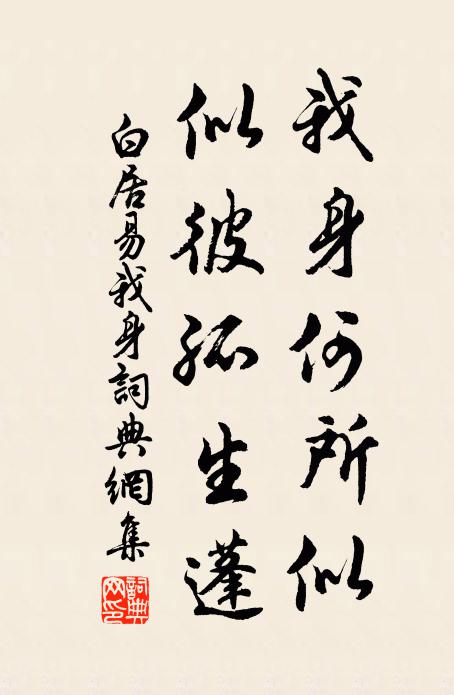 我身何所似
似彼孤生蓬
白居易我身詞典網集
詞典
网印